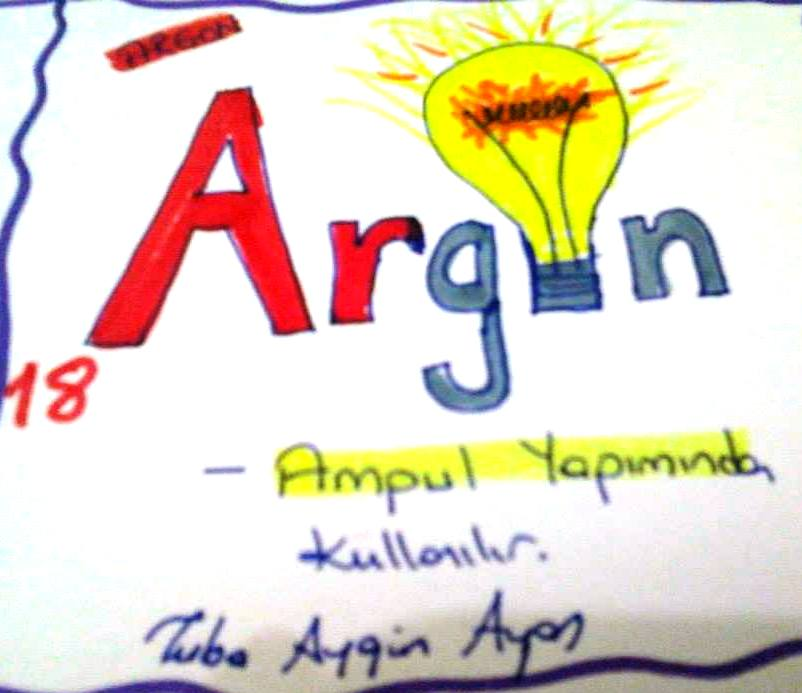 ARGON
Argon
18
- Ampul Yapımında
kullanılır.
Tuba Aygin